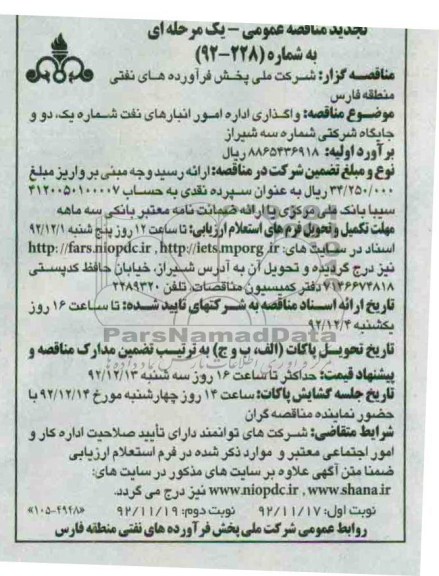 تجدید مناقصه عمومی - یک مرحله ای
به شماره (۲۲۸-۹۲)
مناقصه گزار: شرکت ملی پخش فرآورده های نفتی
منطقه فارس
موضوع مناقصه: واگذاری اداره امور انبارهای نفت شماره یک، دو و
جایگاه شرکتی شماره سه شیراز
برآورد اولیه: ۸۸۶۵۴۳۶۹۱۸ ریال
نوع و مبلغ تضمین شرکت در مناقصه: ارائه رسید وجه مبنی بر واریز مبلغ
۳۴/۲۵۰/۰۰۰ ریال به عنوان سپرده نقدی به حساب ۴۱۲۰۰۵۰۱۰۰۰۰۷
سیبا بانک ملی مرکزی یا ارائه ضمانت نامه معتبر بانکی سه ماهه
مهلت تکمیل و تحویل فرم های استعلام ارزیابی: تا ساعت ۱۲ روز پنج شنبه ۹۲/۱۲/۱
اسناد در سایت های: http://fars.niopdc.ir , http://iets.mporg.ir
نیز درج گردیده و تحویل آن به آدرس شیراز، خیابان حافظ کدپستی
۷۱۴۶۶۷۴۸۱۸ دفتر کمیسیون مناقصات، تلفن ۲۲۸۹۳۲۰
تاریخ ارائه اسناد مناقصه به شرکتهای تایید شده: تا ساعت ۱۶ روز
یکشنبه ۹۲/۱۲/۴
ParsNamadData
تاریخ تحویل پاکات (الف، ب و ج) به ترتیب تضمین مدارک مناقصه و
پیشنهاد قیمت: حداکثر تا ساعت ۱۶ روز سه شنبه ۹۲/۱۲/۱۳
تاریخ جلسه گشایش پاکات: ساعت ۱۴ روز چهارشنبه مورخ ۹۲/۱۲/۱۴ با
حضور نماینده مناقصه گران
شرایط متقاضی: شرکت های توانمند دارای تأیید صلاحیت اداره کار و
امور اجتماعی معتبر و موارد ذکر شده در فرم استعلام ارزیابی
ضمنا متن آگهی علاوه بر سایت های مذکور در سایت های:
www.niopdc.ir , www.shana.ir نیز درج می گردد.
نوبت اول: ۹۲/۱۱/۱۷ نوبت دوم: ۹۲/۱۱/۱۹ «۱۰۵-۴۹۴۸»
روابط عمومی شرکت ملی پخش فرآورده های نفتی منطقه فارس